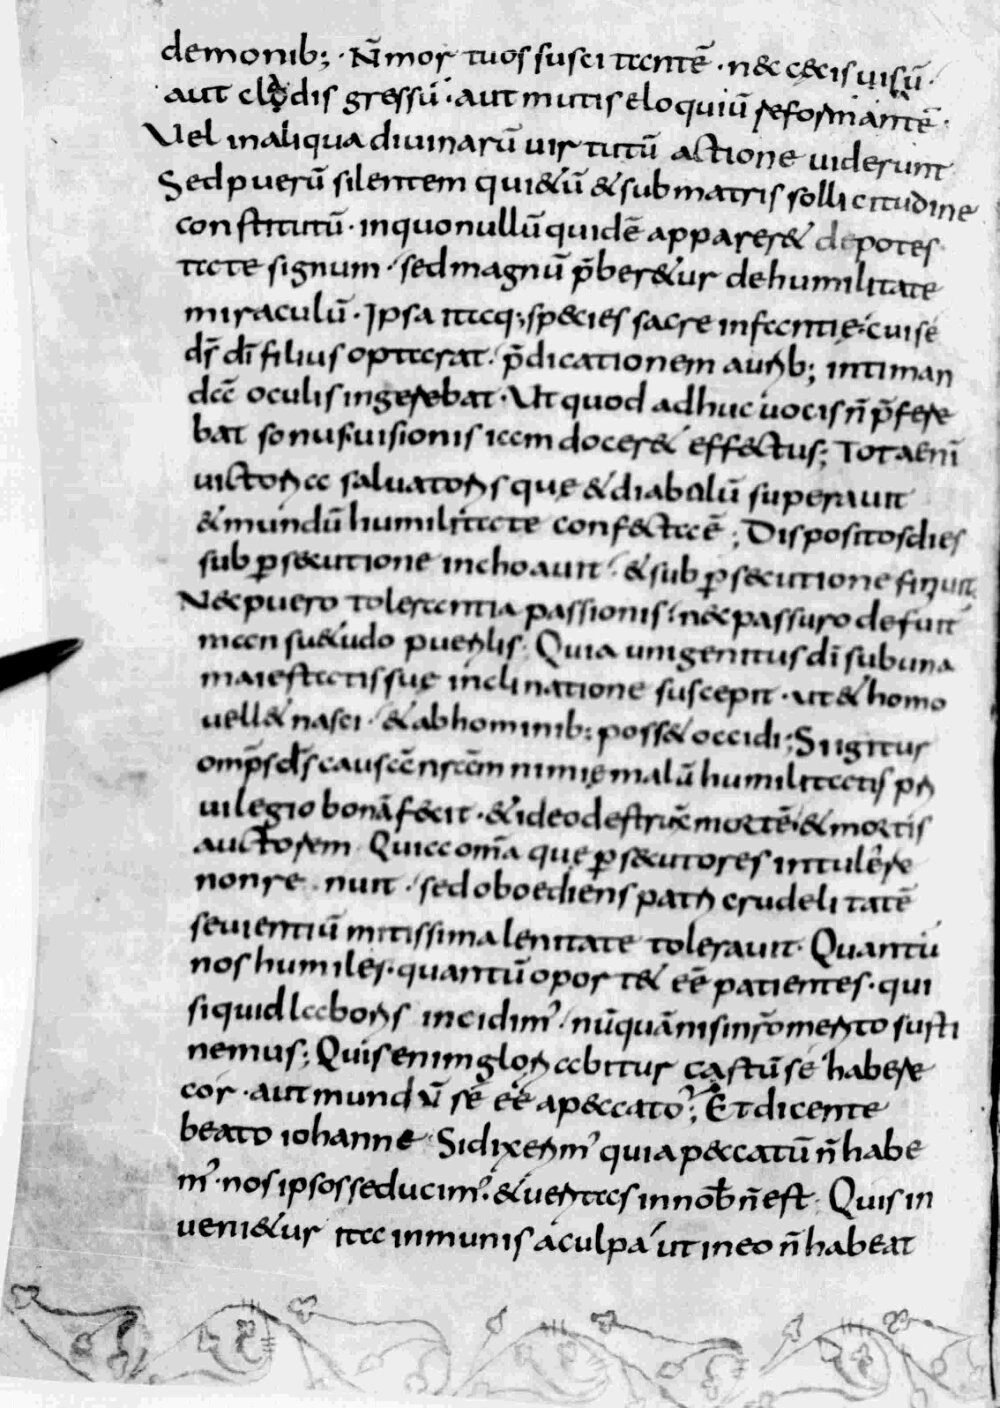 demonib; · N̄ mortuos suscitantē · nec cęcis uisū ·
aut clodis gressū · aut mutis eloquiū reformantē ·
Vel in aliqua diuinarū uirtutū actione uiderunt
Sed puerū silentem quietū & sub matris sollicitudine
constitutū · in quo nullū quidē apparer& de potes
tate signum · sed magnū p̄ber&ur de humilitate
miraculū · Ipsa itaq; species sacre infantię · cui se
ds̄ dī filius aptarat · p̄dicationem aurib; intiman
dā oculis ingerebat · Ut quod adhuc uocis n̄ p̄fere
bat sonus · uisionis iam docer& effectus; Tota enī
uictoria saluatoris que & diabolū superauit
& mundū humilitate confecta ē; Dispositos dies
sub p̲secutione inchoauit · & sub p̲secutione finiuit
Nec puero tolerantia passionis · nec passuro defuit
mansu&udo puerilis · Quia unigenitus dī sub una
maiestatis suę inclinatione suscepit · ut & homo
uell& nasci · & ab hominib; poss& occidi; Si igitur
omp̄s ds̄ causā nr̄am nimię malū humilitatis pri
uilegio bonā fecit · & ideo destrux mortē · & mortis
auctorem Quia om̄a quę p̲secutores intulere
non renuit · sed oboediens patri crudelitatē
seuientiū mitissima lenitate tolerauit · Quantū
nos humiles · quantū oport& eē patientes · qui
si quid laboris incidim' · nūquā nisi nr̄o merito susti
nemus; Quis enim gloriabitur castū se habere
cor · aut mundū se eē a peccato; Et dicente
beato iohanne · Si dixerim' quia peccatū n̄ habe
m' · nos ipsos seducim' · & ueritas in nob̄ n̄ est · Quis in
ueni&ur ita inmunis a culpa ut in eo n̄ habeat